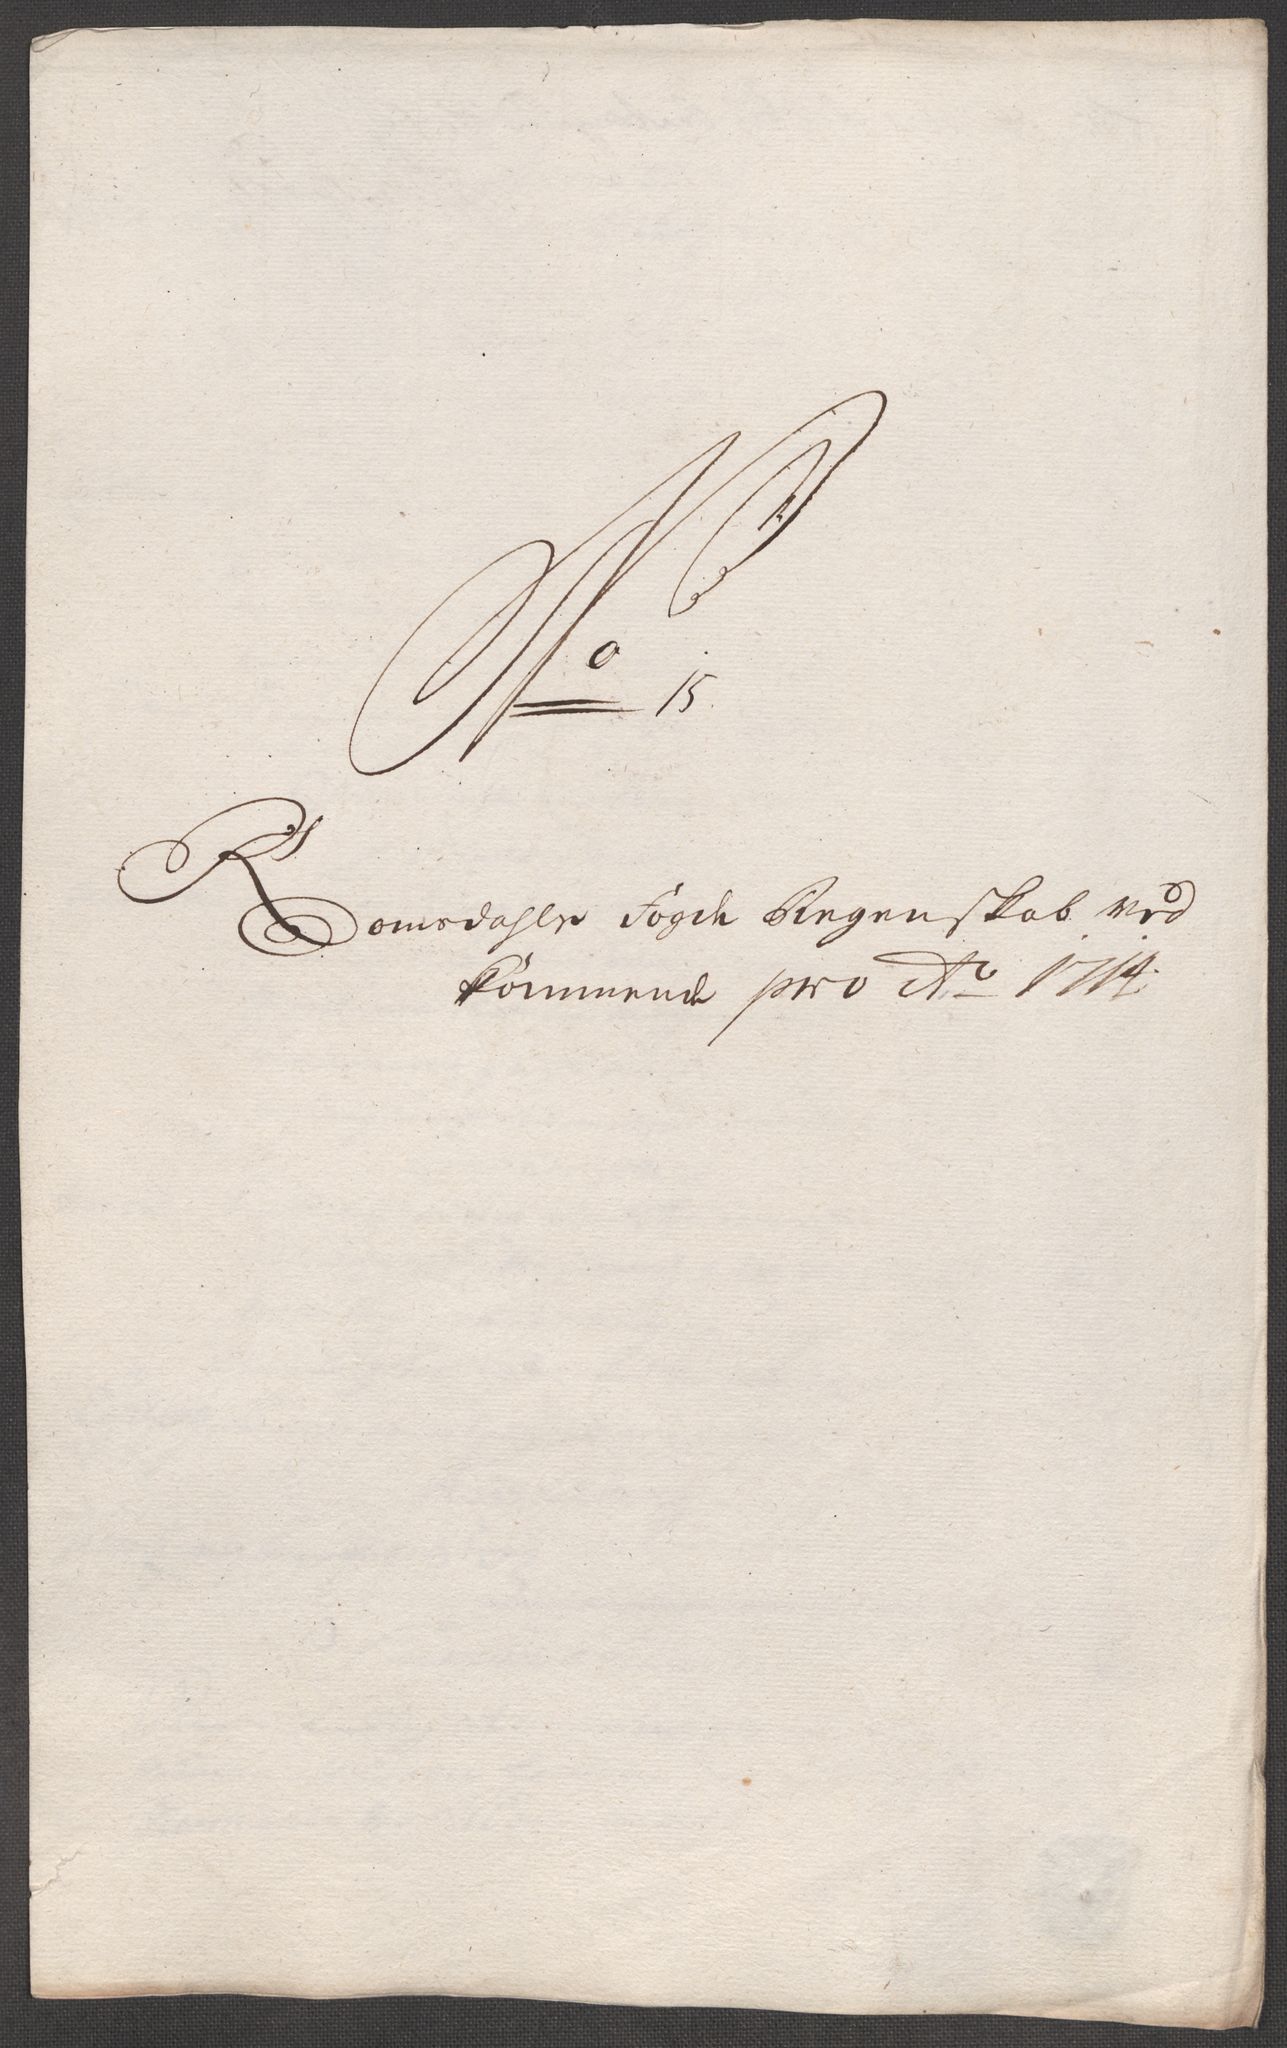 No 15.
Romsdahls Fogde Regenskab ved
kommende pro Ao 1714.